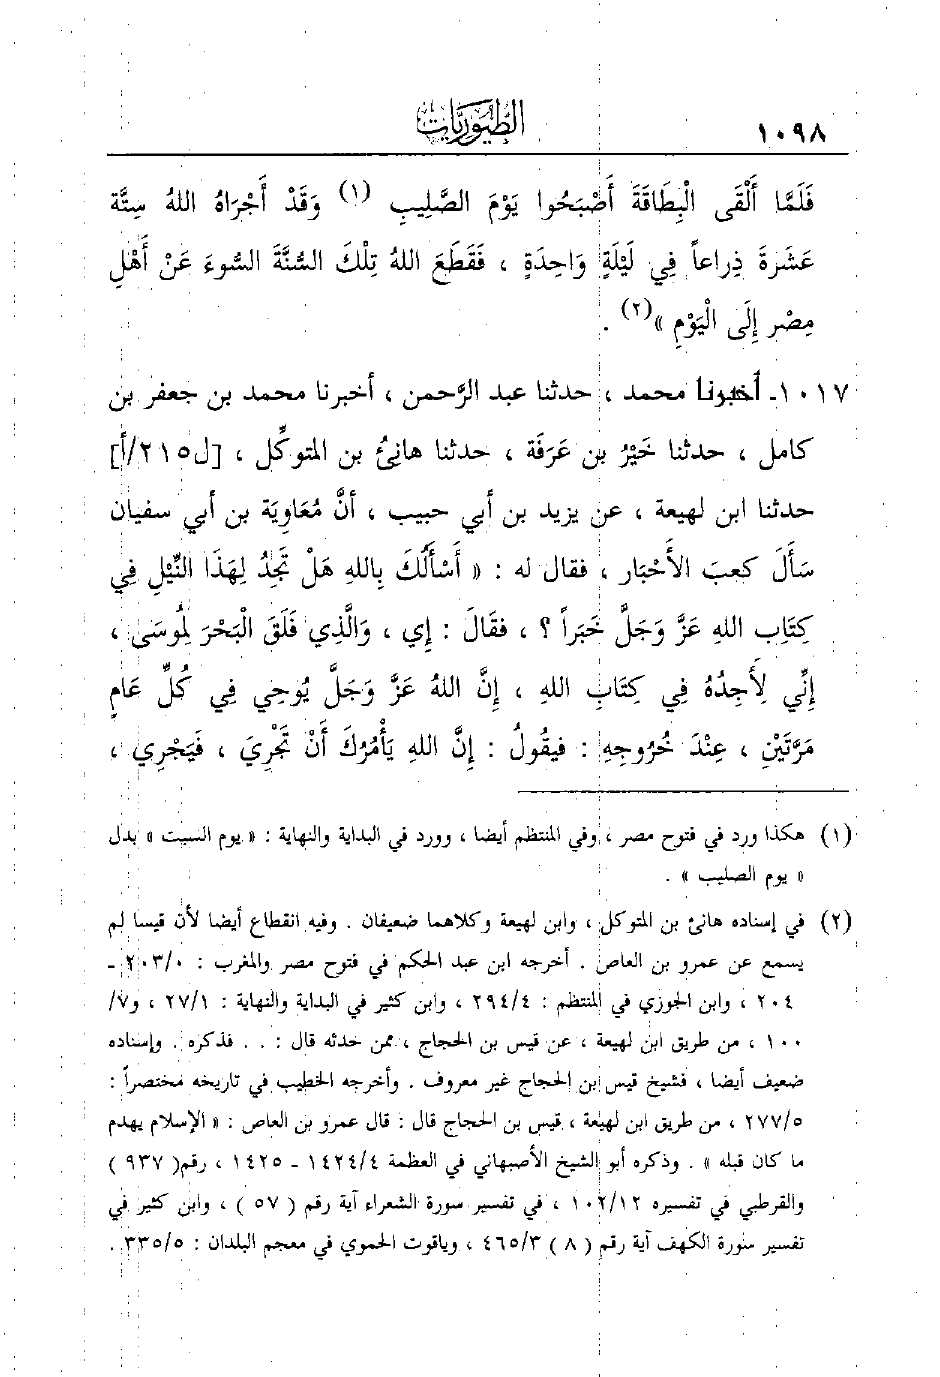 ١٠٩٨
الطيوريات
فَلَمَّا أَلْقَى الْبِطَاقَةَ أَصْبَحُوا يَوْمَ الصَّلِيبِ (١) وَقَدْ أَجْرَاهُ اللهُ سِتَّة
عَشَرَةَ ذِرَاعاً فِي لَيْلَةٍ وَاحِدَةٍ ، فَقَطَعَ اللهُ تِلْكَ السُّنَّةَ السُّوءَ عَنْ أَهْلِ
مِصْر إِلَى الْيَوْمِ »(٢) .
١٠١٧ـ أخبرنا محمد ، حدثنا عبد الرَّحمن ، أخبرنا محمد بن جعفر بن
كامل ، حدثنا خَيْرُ بن عَرَفَة ، حدثنا هانِئُ بن المتوكِّل ، [ل٢١٥/أ]
حدثنا ابن لهيعة ، عن يزيد بن أبي حبيب ، أنَّ مُعَاوِيَة بن أبي سفيان
سَأَلَ كعبَ الأَحْبَار ، فقال له : « أَسْأَلُكَ بِاللهِ هَلْ تَجِدُ لِهَذَا النِّيْلِ فِي
كِتَابِ اللهِ عَزَّ وَجَلَّ خَبَراً ؟ ، فقَالَ : إِي ، وَالَّذِي فَلَقَ الْبَحْرَ لِمُوسَى ،
إِنِّي لأَجِدُهُ فِي كِتَابِ اللهِ ، إِنَّ اللهُ عَزَّ وَجَلَّ يُوحِي فِي كُلِّ عَامٍ
مَرَّتَيْنِ ، عِنْدَ خُرُوجِهِ : فيقُولُ : إِنَّ اللهِ يَأْمُرُكَ أَنْ تَجْرِيَ ، فَيَجْرِي ،
(١) هكذا ورد في فتوح مصر ، وفي المنتظم أيضا ، وورد في البداية والنهاية : « يوم السبت » بدل
« يوم الصليب » .
(٢) في إسناده هانئ بن المتوكل ، وابن لهيعة وكلاهما ضعيفان . وفيه انقطاع أيضا لأن قيسا لم
يسمع عن عمرو بن العاص . أخرجه ابن عبد الحكم في فتوح مصر والمغرب : ٢٠٣/٠ ـ
٢٠٤ ، وابن الجوزي في المنتظم : ٢٩٤/٤ ، وابن كثير في البداية والنهاية : ٢٧/١ ، و٧/
١٠٠ ، من طريق ابن لهيعة ، عن قيس بن الحجاج ، ممن حدثه قال : . . فذكره . وإسناده
ضعيف أيضا ، فشيخ قيس بن الحجاج غير معروف . وأخرجه الخطيب في تاريخه مختصراً :
٢٧٧/٥ ، من طريق ابن لهيعة ، قيس بن الحجاج قال : قال عمرو بن العاص : « الإسلام يهدم
ما كان قبله » . وذكره أبو الشيخ الأصبهاني في العظمة ١٤٢٤/٤ ـ ١٤٢٥ ، رقم( ٩٣٧ )
والقرطبي في تفسيره ١٠٢/١٢ ، في تفسير سورة الشعراء آية رقم ( ٥٧ ) ، وابن كثير في
تفسير سورة الكهف آية رقم ( ٨ ) ٤٦٥/٣ ، وياقوت الحموي في معجم البلدان : ٣٣٥/٥ .